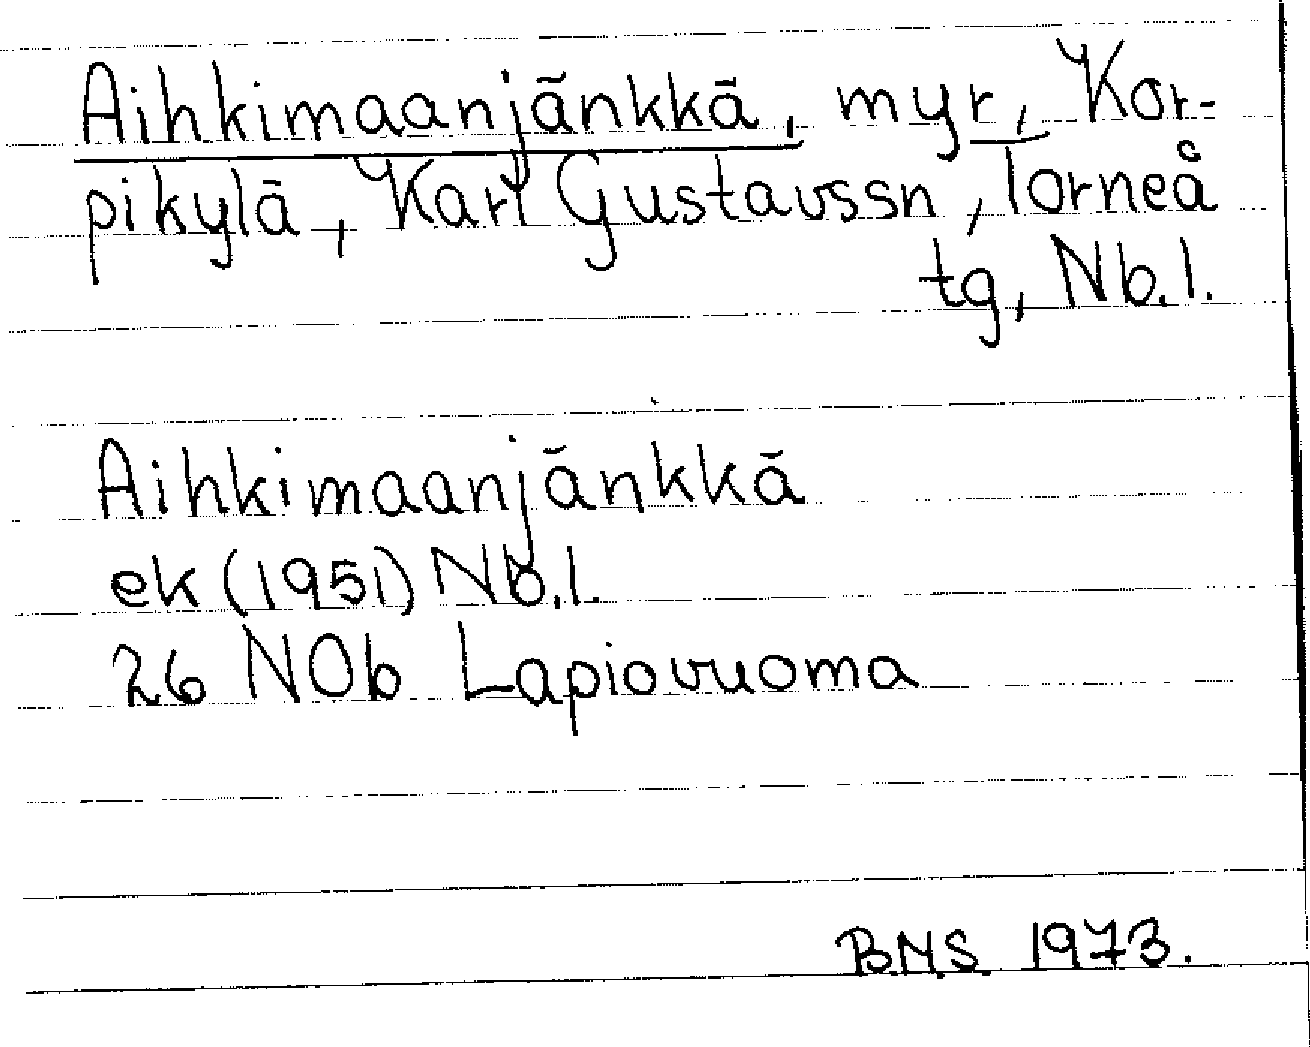 Aihkimaanjänkkä, myr, Kor-
pikylä, Karl Gustavssn, Torneå
tg, Nb. l.
Aihkimaanjänkkä
ek (1951) Nb. l.
26 NOb Lapiovuoma
BMS 1973.